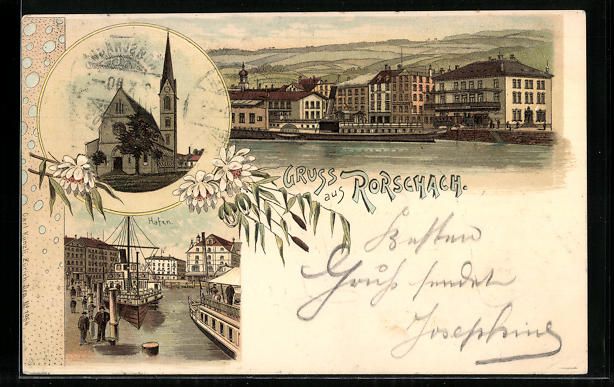 GRUSS
aus RORSCHACH.
Hafen.
Besten
Gruß sendet
Josephine